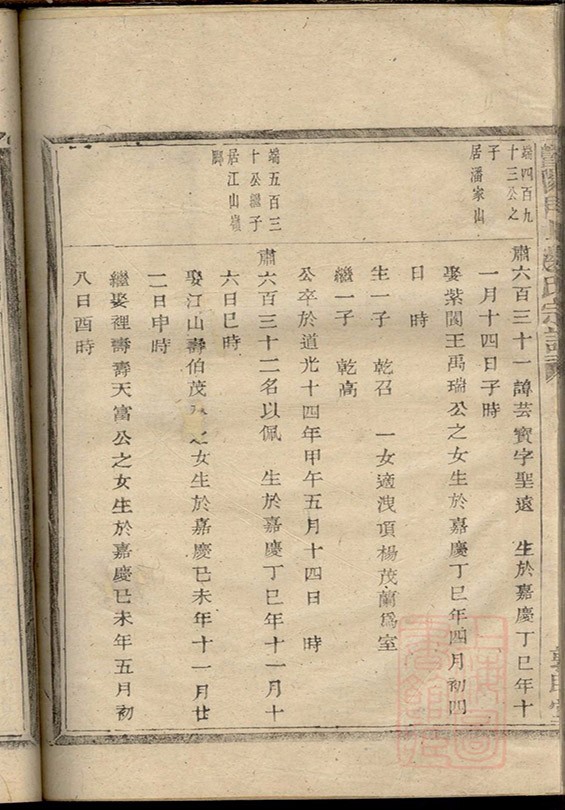 端四百九
十三公之
子
居潘家山
肅六百三十一諱芸實字聖遠 生於嘉慶丁巳年十
一月十四日子時
娶紫閬王禹瑞公之女生於嘉慶丁巳年四月初四
日 時
生一子 乾召 一女適洩頂楊茂蘭爲室
繼一子 乾高
公卒於道光十四年甲午五月十四日 時
端五百三
十公繼子
居江山嶺
脚
肅六百三十二名以佩 生於嘉慶丁巳年十一月十
六日巳時
娶江山壽伯茂 之女生於嘉慶己未年十一月廿
二日申時
繼娶裡壽壽天富公之女生於嘉慶己未年五月初
八日酉時
氏宗譜